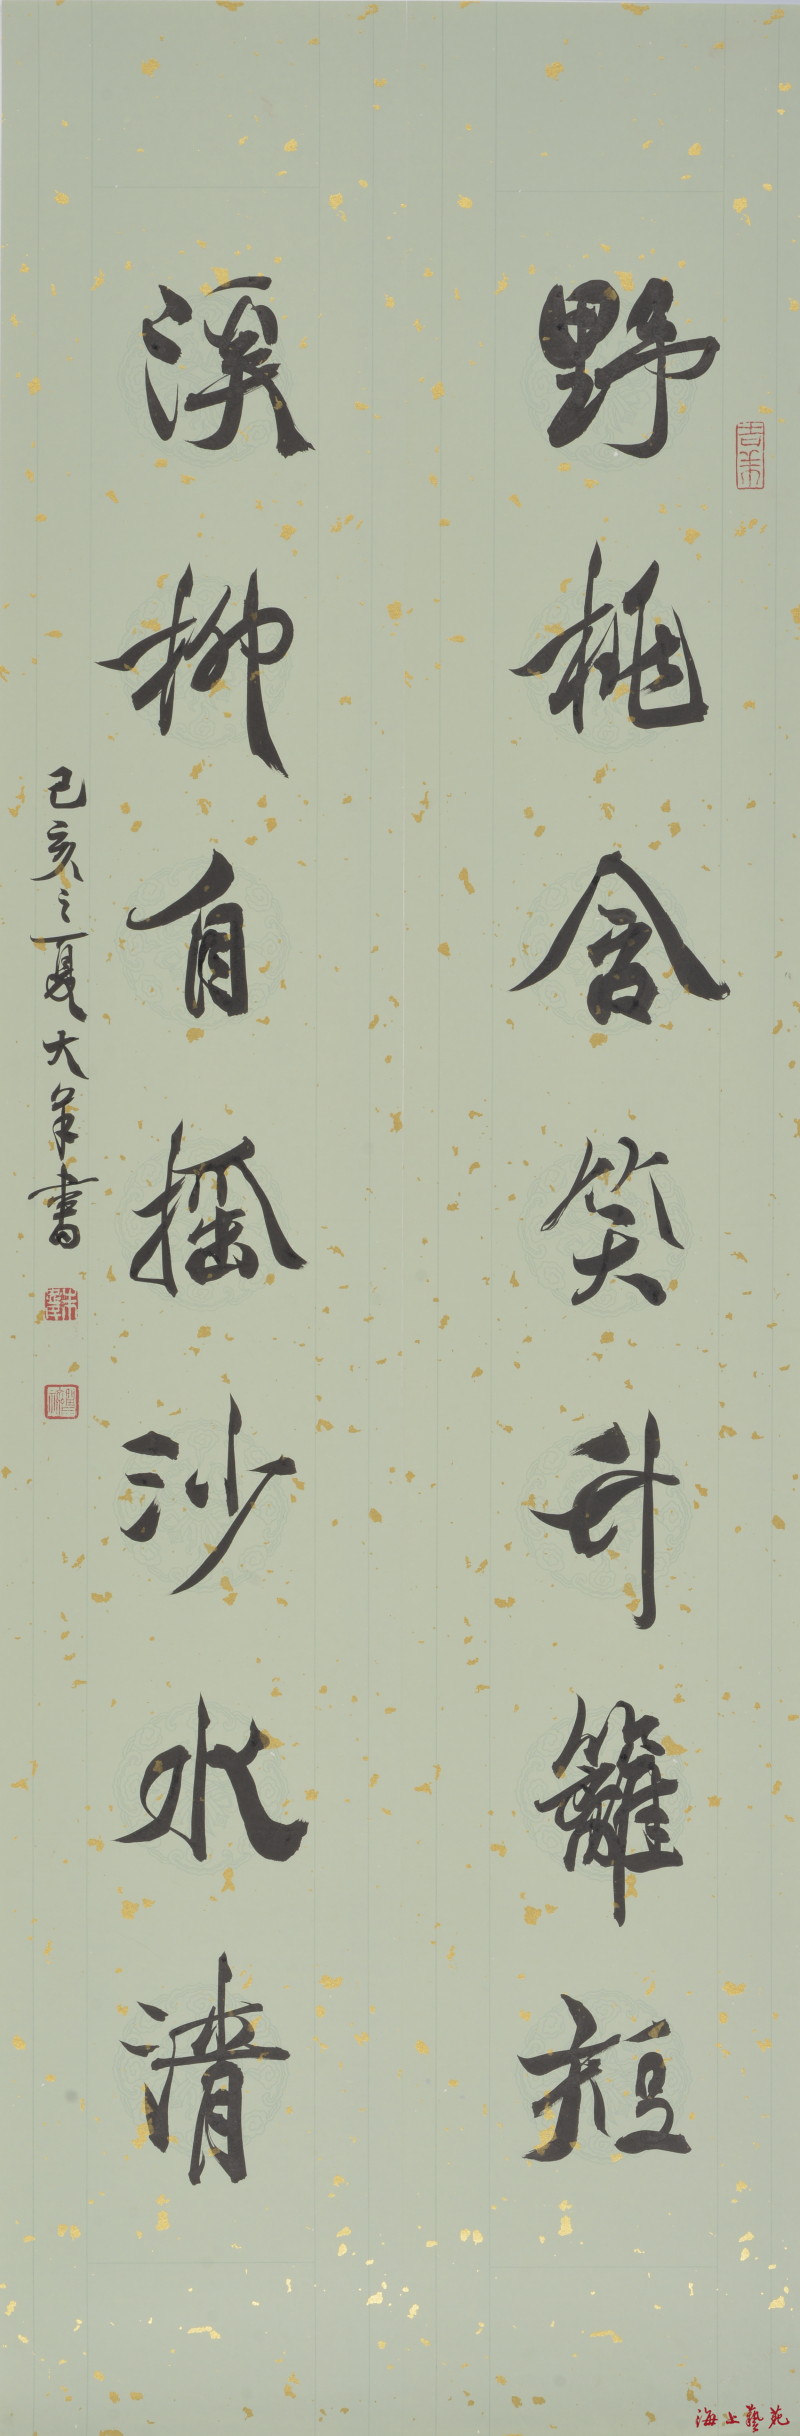 野桃含笑竹籬短
吉羊
溪柳自搖沙水清
己亥之夏大年書
海上藝苑